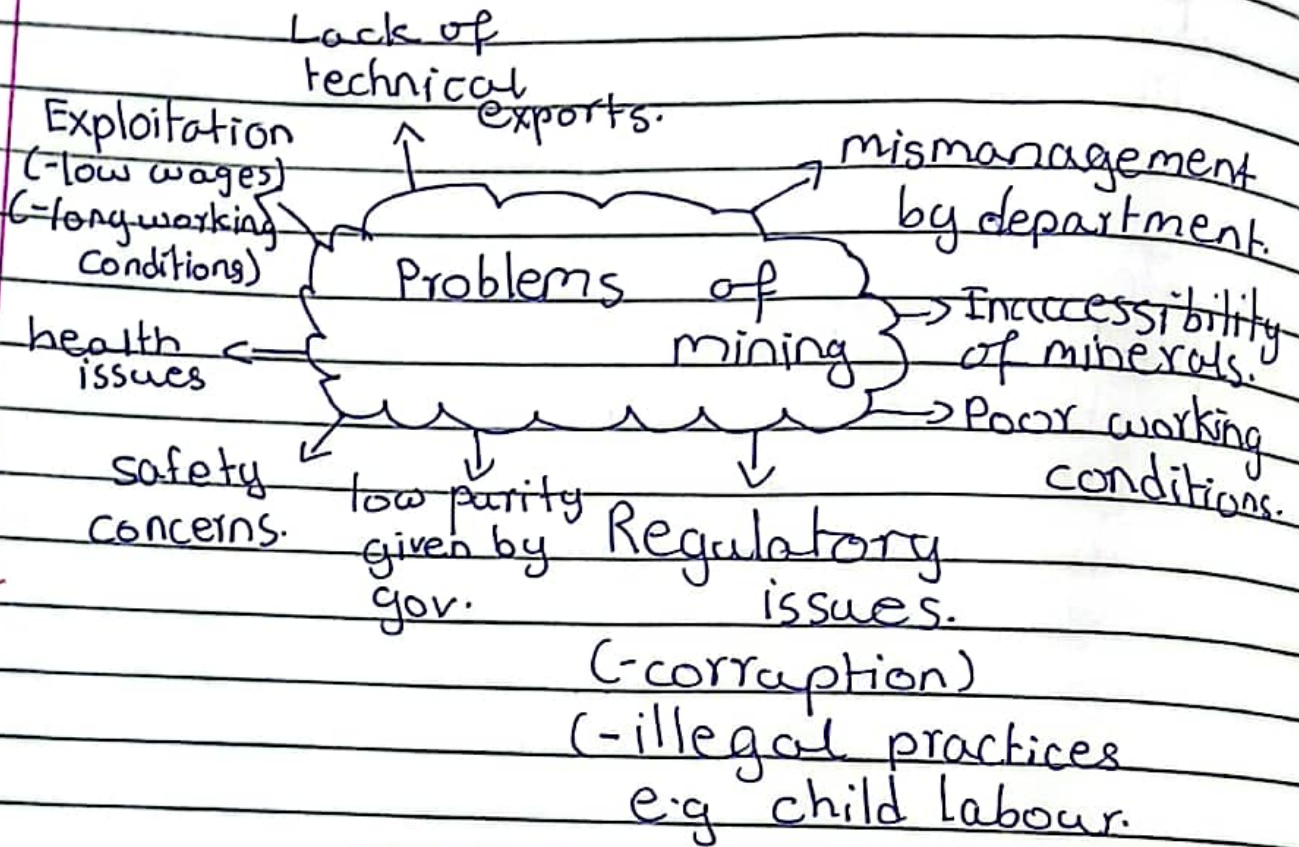 Lack of
technical
exports.
Exploitation
(-low wages)
(-long working
conditions)
mismanagement
by department.
Problems of
mining
Inaccessibility
of minerals.
health
issues
Poor working
conditions.
safety
concerns.
low purity
given by
gov.
Regulatory
issues.
(-corraption)
(-illegal practices
e.g child labour.